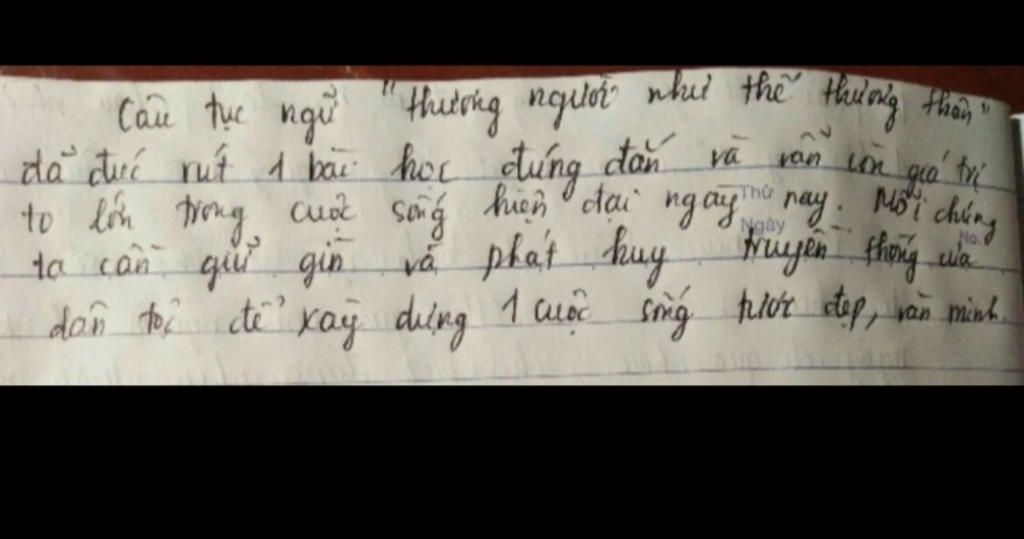 Câu tục ngữ "thương người như thể thương thân"
đã đúc rút 1 bài học đúng đắn và vẫn còn giá trị
to lớn trong cuộc sống hiện đại ngày nay. Mỗi chúng
ta cần giữ gìn và phát huy truyền thống của
dân tộc để xây dựng 1 cuộc sống tươi đẹp, văn minh.
Thứ
Ngày
No.